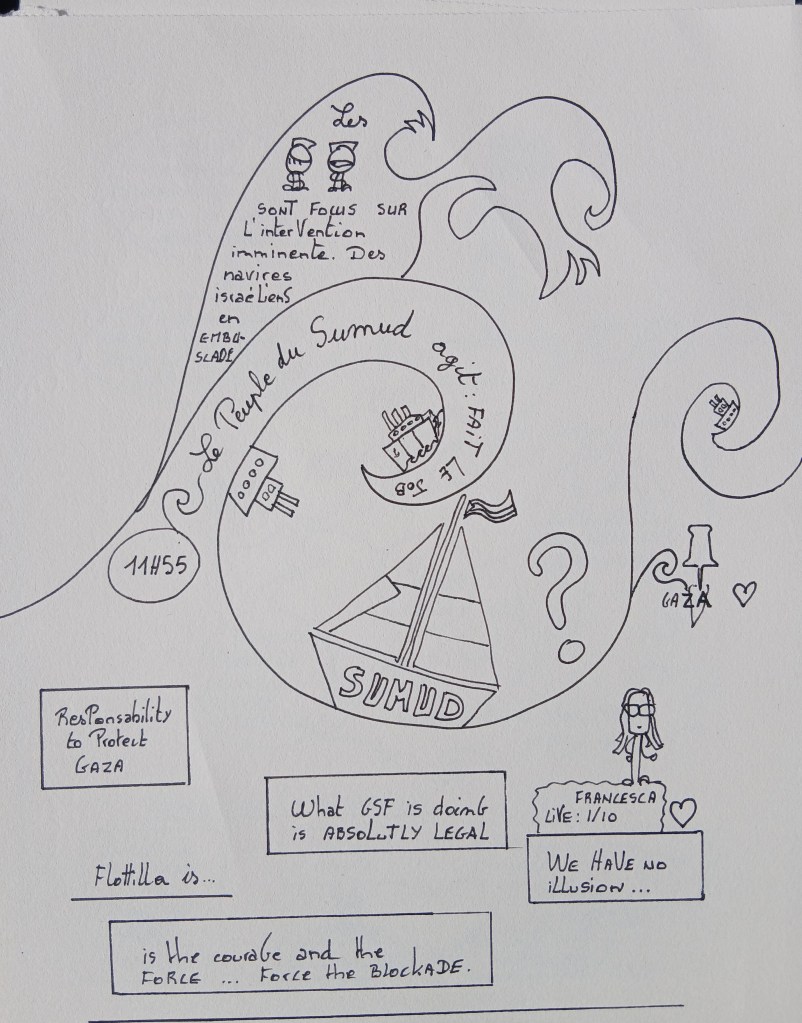 Les
SONT FOCUS SUR
L'interVention
imminente. Des
navires
israéLienS
en
EMBU-
SCADE
Le Peuple du Sumud agit : FAIT LE JOB
11H55
SUMUD
?
GAZA
ResPonsability
to Protect
GAZA
FRANCESCA
LiVE : 1/10
What GSF is doinG
is ABSOLUTLY LEGAL
WE HAVE NO
iLLUSION ...
Flottilla is...
is the couraGe and the
FORCE ... Force the BLOCKADE.